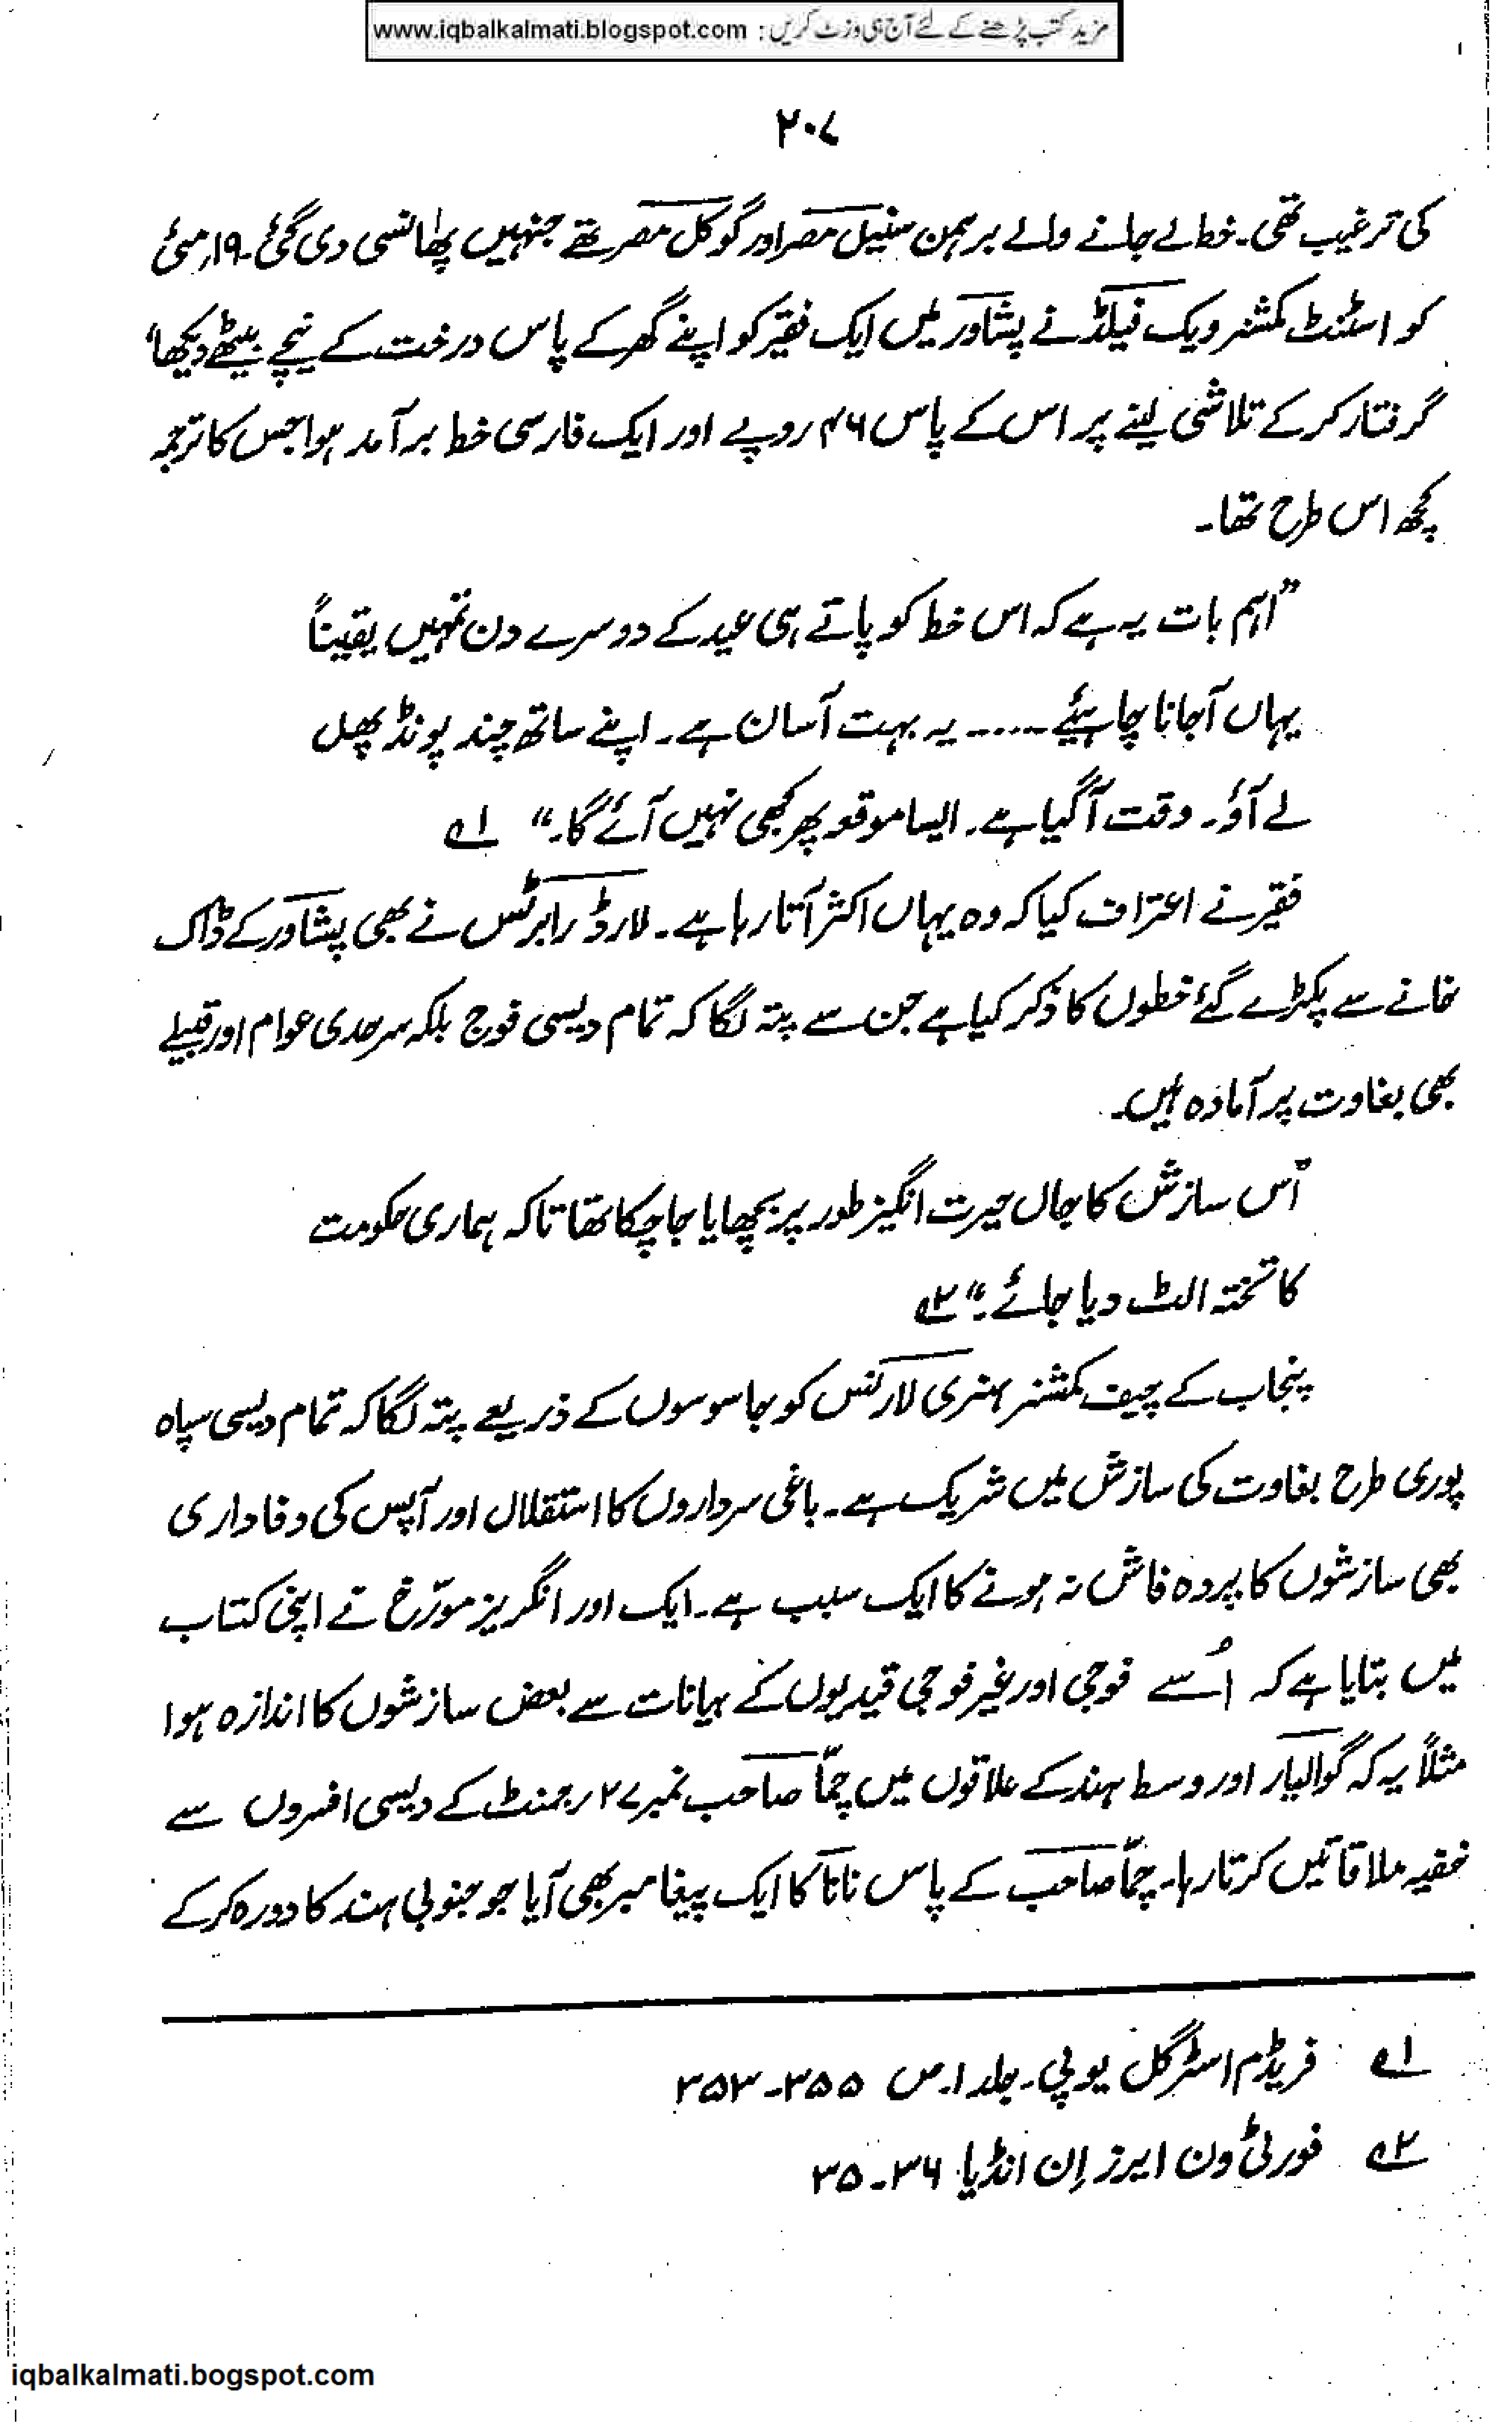 مزید کتب پڑھنے کے لئے آج ہی وزٹ کریں : www.iqbalkalmati.blogspot.com
۲۰۷
کی ترغیب تھی۔ خط لے جانے والے برہمن سنیل مصر اور گوکل مصر تھے جنہیں پھانسی دی گئی۔ ۱۹؍مئی
کو اسٹنٹ کمشنر ویک فیلڈ نے پشاور میں ایک فقیر کو اپنے گھر کے پاس درخت کے نیچے بیٹھے دیکھا،
گرفتار کر کے تلاشی لینے پر اس کے پاس ۴۶ روپے اور ایک فارسی خط برآمد ہوا جس کا ترجمہ
کچھ اس طرح تھا۔
”اہم بات یہ ہے کہ اس خط کو پاتے ہی عید کے دوسرے دن تمہیں یقیناً
یہاں آجانا چاہیئے ----- یہ بہت آسان ہے۔ اپنے ساتھ چند پونڈ پھل
لے آؤ۔ وقت آگیا ہے۔ ایسا موقعہ پھر کبھی نہیں آئے گا۔“ ۱؎
فقیر نے اعتراف کیا کہ وہ یہاں اکثر آتا رہا ہے۔ لارڈ رابرٹس نے بھی پشاور کے ڈاک
خانے سے پکڑے گئے خطوں کا ذکر کیا ہے جن سے پتہ لگا کہ تمام دیسی فوج بلکہ سرحدی عوام اور قبیلے
بھی بغاوت پر آمادہ ہیں۔
”اس سازش کا جال حیرت انگیز طور پر بچھایا جا چکا تھا تاکہ ہماری حکومت
کا تختہ الٹ دیا جائے۔“ ۲؎
پنجاب کے چیف کمشنر ہنری لارنس کو جاسوسوں کے ذریعے پتہ لگا کہ تمام دیسی سپاہ
پوری طرح بغاوت کی سازش میں شریک ہے۔ باغی سرداروں کا استقلال اور آپس کی وفاداری
بھی سازشوں کا پردہ فاش نہ ہونے کا ایک سبب ہے۔ ایک اور انگریز مورّخ نے اپنی کتاب
میں بتایا ہے کہ اُسے فوجی اور غیر فوجی قیدیوں کے بیانات سے بعض سازشوں کا اندازہ ہوا
مثلاً یہ کہ گوالیار اور وسط ہند کے علاقوں میں چمّا صاحب نمبر ۲۷ رجمنٹ کے دیسی افسروں سے
خفیہ ملاقاتیں کرتا رہا۔ چمّا صاحب کے پاس نانا کا ایک پیغامبر بھی آیا جو جنوبی ہند کا دورہ کرکے
۱؎ فریڈم اسٹرگل یوپی۔ جلد ۱۔ ص ۳۵۵-۳۵۳
۲؎ فورٹی ون ایرز اِن انڈیا ۳۶-۳۵
iqbalkalmati.bogspot.com